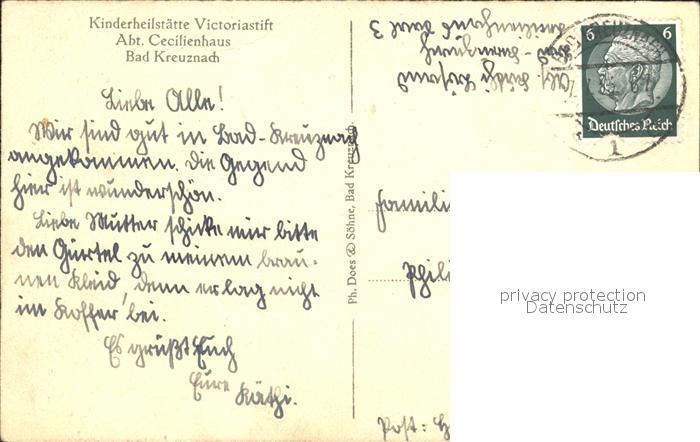 Kinderheilstätte Victoriastift
Abt. Cecilienhaus
Bad Kreuznach
Liebe Alle!
Wir sind gut in Bad-Kreuznach
angekommen. Die Gegend
hier ist wunderschön.
Liebe Mutter schicke mir bitte
den Gürtel zu meinem brau-
nen Kleid, denn er lag nicht
im Koffer bei.
Es grüßt Euch
Eure Käthi.
Ph. Does & Söhne, Bad Kreuznach.
6 6
Deutsches Reich
1
Familie
Phili
Post: H
privacy protection
Datenschutz